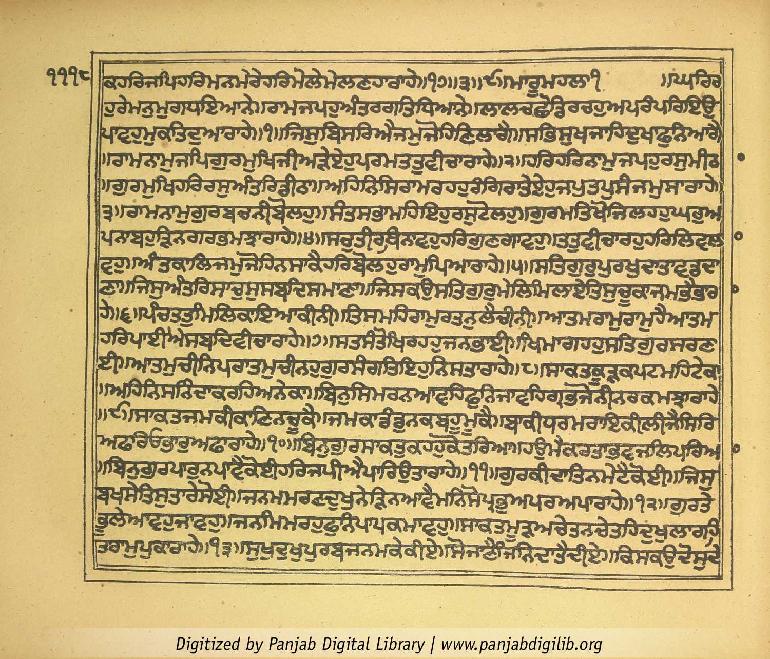 ੧੧੧੮
ਕਹਰਿਜਪਿਹਰਿਮਨਮੇਰੇਹਰਿਮੇਲੇਮੇਲਣਹਾਰਾਹੇ॥੧੭॥੩॥੯॥ਮਾਰੂਮਹਲਾ੧ ॥ਘਰਿਰ
ਹੁਰੇਮਨਮੁਗਧਇਆਨੇ॥ਰਾਮਜਪਹੁਅੰਤਰਗਤਿਧਿਆਨੇ॥ਲਾਲਚਛੋਡਿਰਚਹੁਅਪਰੰਪਰਿਇਉ
ਪਾਵਹੁਮੁਕਤਿਦੁਆਰਾਹੇ॥੧॥ਜਿਸੁਬਿਸਰਿਐਜਮੁਜੋਹਣਿਲਾਗੈ॥ਸਭਿਸੁਖਜਾਹਿਦੁਖਾਫੁਨਿਆਗੈ
॥ਰਾਮਨਾਮੁਜਪਿਗੁਰਮੁਖਿਜੀਅੜੇਏਹੁਪਰਮਤਤੁਵੀਚਾਰਾਹੇ॥੨॥ਹਰਿਹਰਿਨਾਮੁਜਪਹੁਰਸੁਮੀਠਾ
॥ਗੁਰਮੁਖਿਹਰਿਰਸੁਅੰਤਰਿਡੀਠਾ॥ਅਹਿਨਿਸਿਰਾਮਰਹਹੁਰੰਗਿਰਾਤੇਏਹੁਜਪੁਤਪੁਸੰਜਮੁਸਾਰਾਹੇ
੩॥ਰਾਮਨਾਮੁਗੁਰਬਚਨੀਬੋਲਹੁ॥ਸੰਤਸਭਾਮਹਿਇਹੁਰਸੁਟੋਲਹੁ॥ਗੁਰਮਤਿਖੋਜਿਲਹਹੁਘਰੁਅ
ਪਨਾਬਹੁੜਿਨਗਰਭਮਝਾਰਾਹੇ॥੪॥ਸਚੁਤੀਰਥਿਨਾਵਹੁਹਰਿਗੁਣਗਾਵਹੁ॥ਤਤੁਵੀਚਾਰਹੁਹਰਿਲਿਵਲਾ
ਵਹੁ॥ਅੰਤਕਾਲਿਜਮੁਜੋਹਿਨਸਾਕੈਹਰਿਬੋਲਹੁਰਾਮੁਪਿਆਰਾਹੇ॥੫॥ਸਤਿਗੁਰੁਪੁਰਖੁਦਾਤਾਵਡਦਾ
ਣਾ॥ਜਿਸੁਅੰਤਰਿਸਾਚੁਸੁਸਬਦਿਸਮਾਣਾ॥ਜਿਸਕਉਸਤਿਗੁਰੁਮੇਲਿਮਿਲਾਏਤਿਸੁਚੂਕਾਜਮਭੈਭਾਰਾ
ਹੇ॥੬॥ਪੰਚਤਤੁਮਿਲਿਕਾਇਆਕੀਨੀ॥ਤਿਸਮਹਿਰਾਮਰਤਨੁਲੈਚੀਨੀ॥ਆਤਮਰਾਮੁਰਾਮੁਹੈਆਤਮ
ਹਰਿਪਾਈਐਸਬਦਿਵੀਚਾਰਾਹੇ॥੭॥ਸਤਸੰਤੋਖਿਰਹਹੁਜਨਭਾਈ॥ਖਿਮਾਗਹਹੁਸਤਿਗੁਰਸਰਣਾ
ਈ॥ਆਤਮੁਚੀਨਿਪਰਾਤਮੁਚੀਨਹੁਗੁਰਸੰਗਤਿਇਹੁਨਿਸਤਾਰਾਹੇ॥੮॥ਸਾਕਤਕੂੜਕਪਟਮਹਿਟੇਕਾ
॥ਅਹਿਨਿਸਿਨਿੰਦਾਕਰਹਿਅਨੇਕਾ॥ਬਿਨੁਸਿਮਰਨਆਵਹਿਫੁਨਿਜਾਵਹਿਗ੍ਰਭਜੋਨੀਨਰਕਮਝਾਰਾਹੇ
॥੯॥ਸਾਕਤਜਮਕੀਕਾਣਿਨਚੂਕੈ॥ਜਮਕਾਡੰਡੁਨਕਬਹੂਮੂਕੈ॥ਬਾਕੀਧਰਮਰਾਇਕੀਲੀਜੈਸਿਰਿ
ਅਫਰਿਓਭਾਰੁਅਫਾਰਾਹੇ॥੧੦॥ਬਿਨੁਗੁਰਸਾਕਤੁਕਹਹੁਕੋਤਰਿਆ॥ਹਉਮੈਕਰਤਾਭਵਜਲਿਪਰਿਆ
॥ਬਿਨੁਗੁਰਪਾਰੁਨਪਾਵੈਕੋਈਹਰਿਜਪੀਐਪਾਰਿਉਤਾਰਾਹੇ॥੧੧॥ਗੁਰਕੀਦਾਤਿਨਮੇਟੈਕੋਈ॥ਜਿਸੁ
ਬਖਸੇਤਿਸੁਤਾਰੇਸੋਈ॥ਜਨਮਮਰਣਦੁਖੁਨੇੜਿਨਆਵੈਮਨਿਸੋਪ੍ਰਭੁਅਪਰਅਪਾਰਾਹੇ॥੧੨॥ਗੁਰਤੇ
ਭੂਲੇਆਵਹੁਜਾਵਹੁ॥ਜਨਮਿਮਰਹੁਫੁਨਿਪਾਪਕਮਾਵਹੁ॥ਸਾਕਤਮੂੜਅਚੇਤਨਚੇਤਹਿਦੁਖੁਲਾਗੈ
ਤਾਰਾਮੁਪੁਕਾਰਾਹੇ॥੧੩॥ਸੁਖੁਦੁਖੁਪੁਰਬਜਨਮਕੇਕੀਏ॥ਸੋਜਾਣੈਜਿਨਿਦਾਤੈਦੀਏ॥ਕਿਸਕਉਦੋਸੁਦੇ
Digitized by Panjab Digital Library | www.panjabdigilib.org